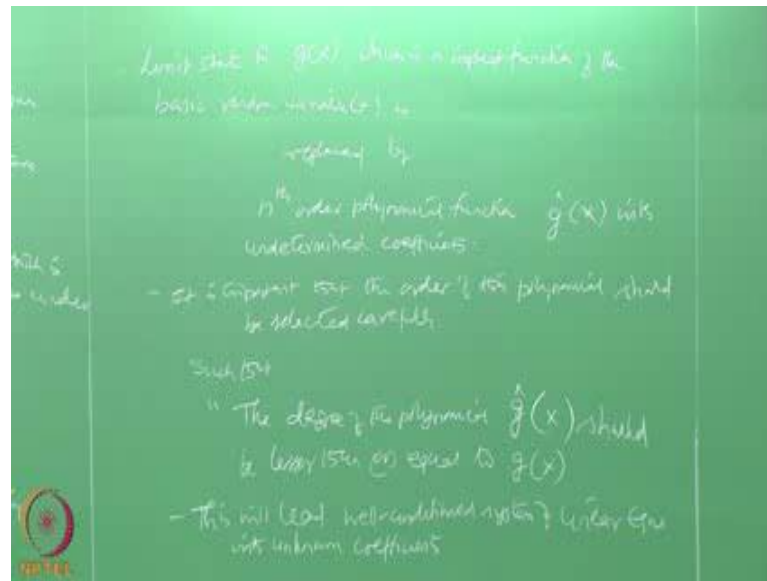 Limit state fn g(x) which is a implicit function of the
basic random variable(s) is
replaced by
nth order polynomial function ĝ(x) with
undetermined coefficients.
- It is important that the order of this polynomial should
be selected carefully
Such that
" The degree of the polynomial ĝ(x) should
be lesser than (or) equal to g(x)
- This will lead well-conditioned system of linear Eqns
with unknown coefficients
NPTEL